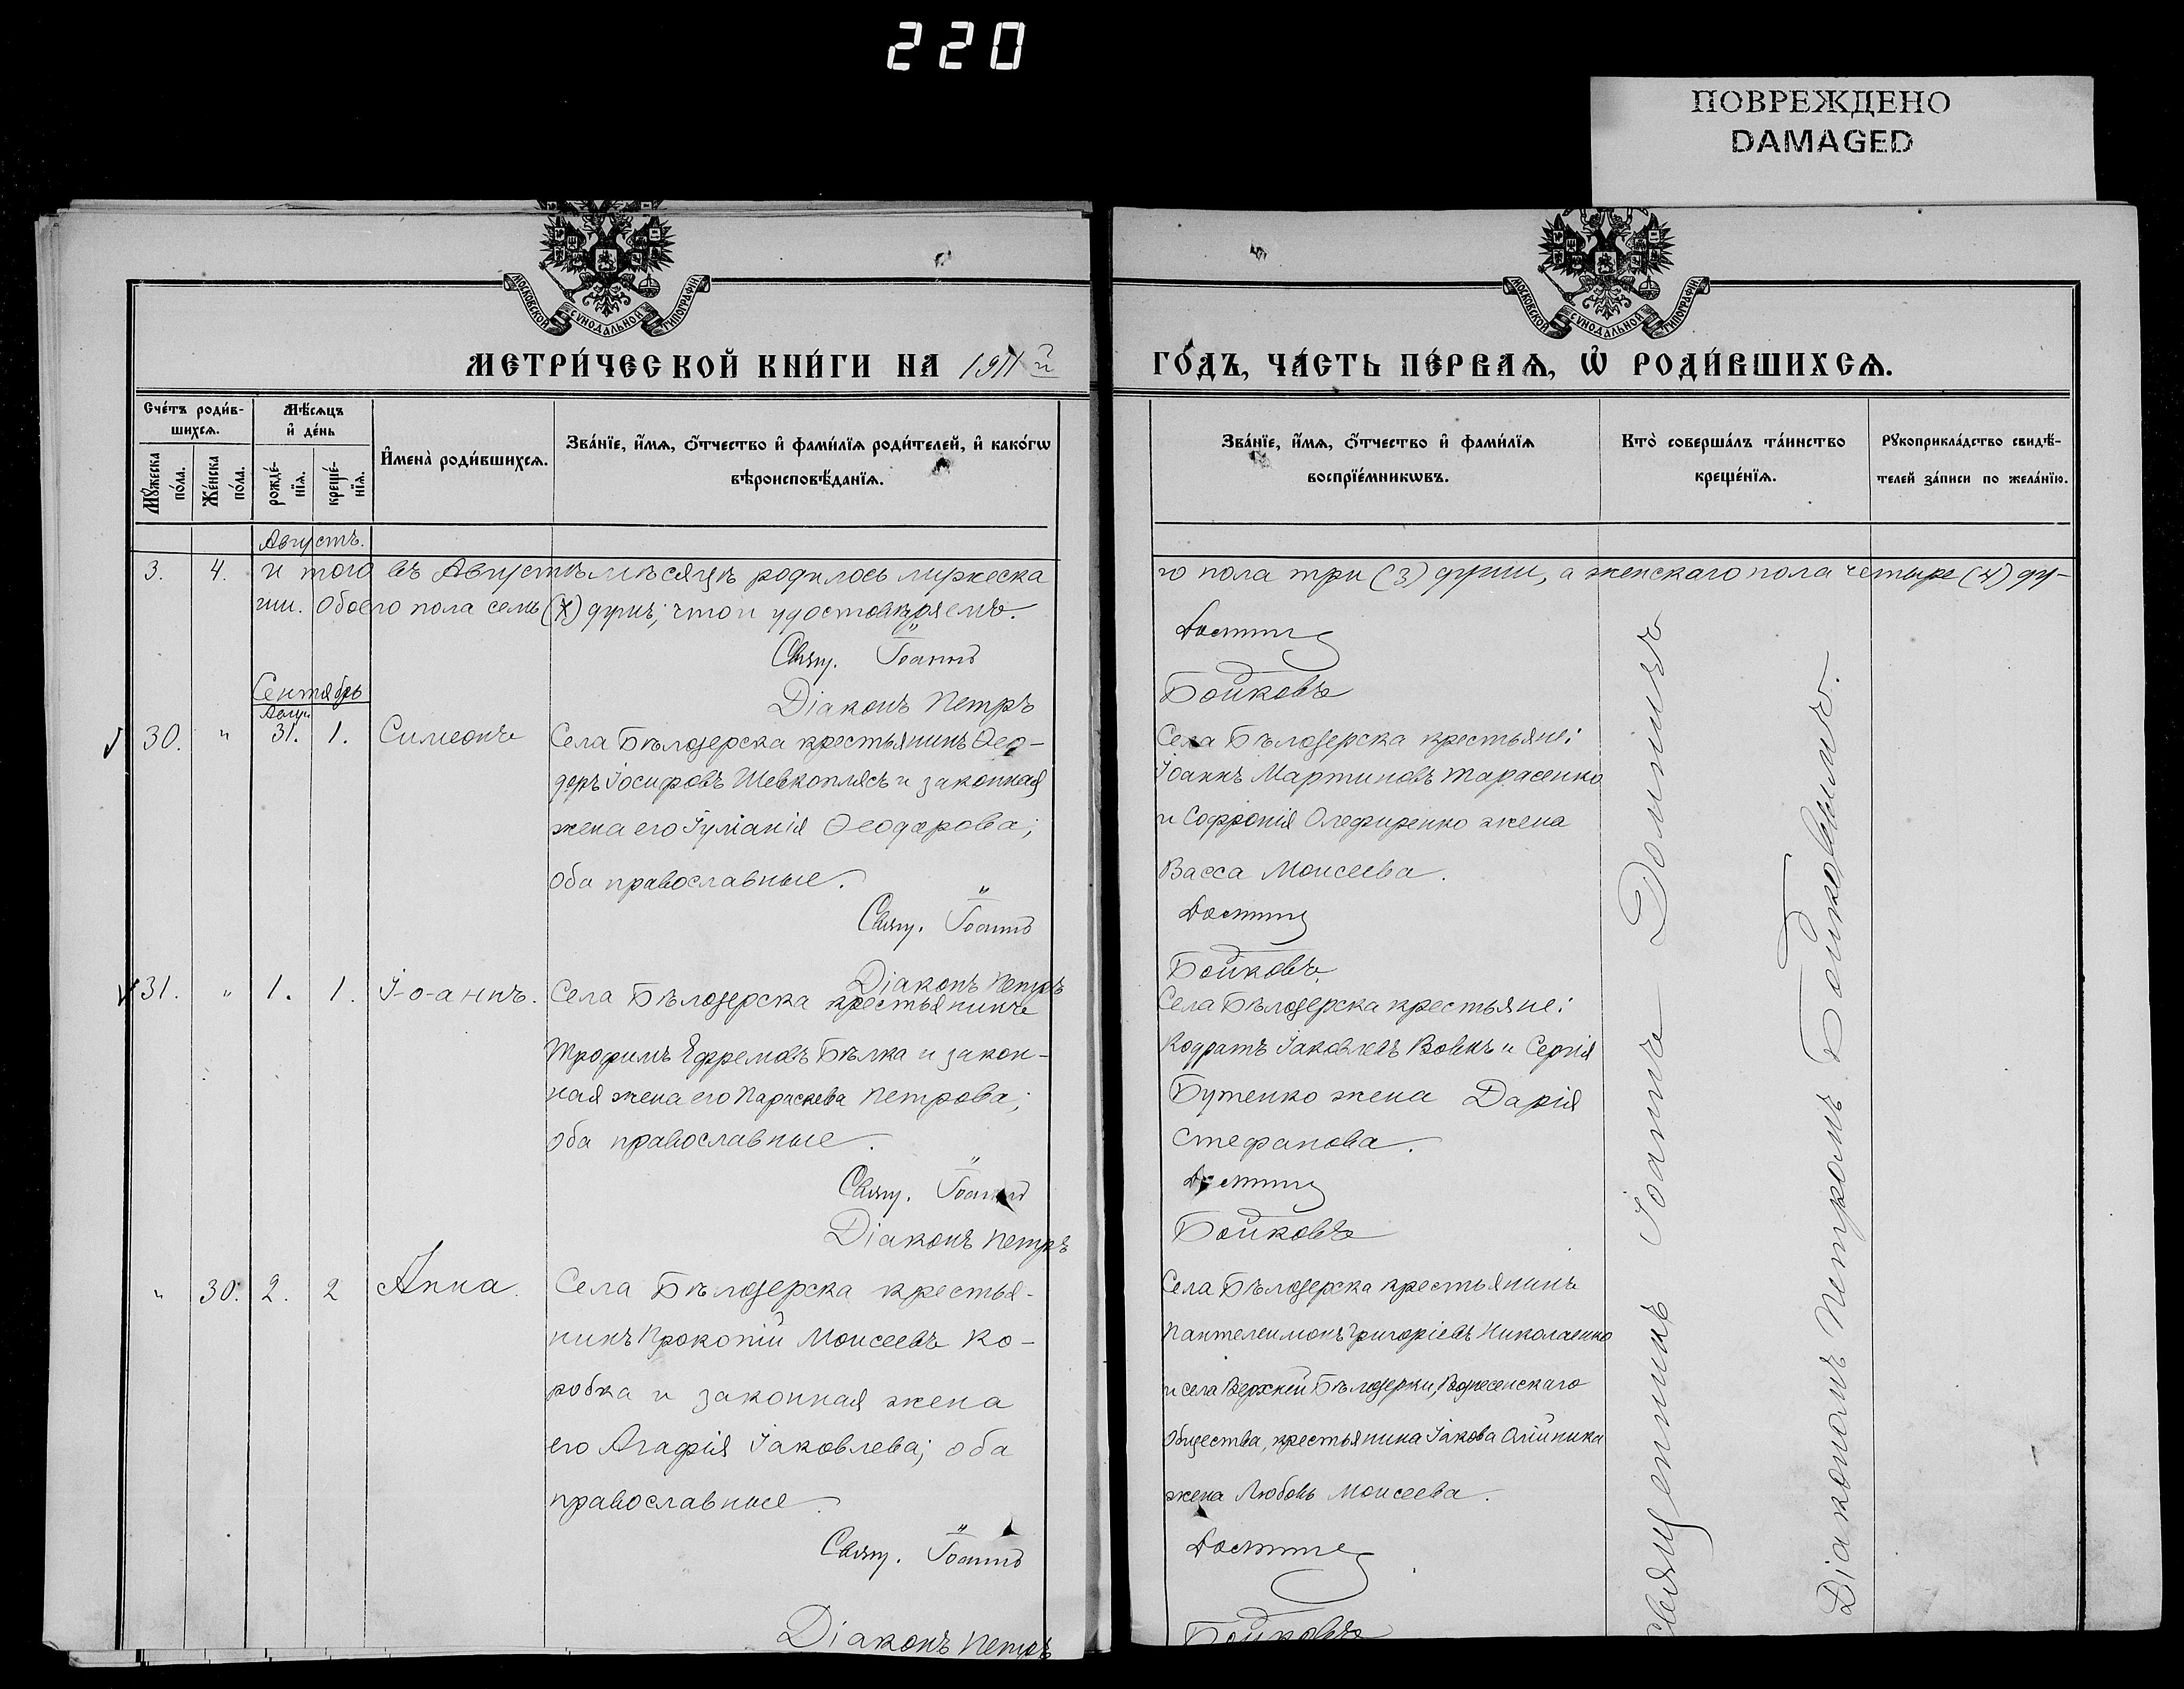 220
ПОВРЕЖДЕНО
DAMAGED
МОСКОВСКОЙ СУНОДАЛЬНОЙ ТИПОГРАФІИ
МОСКОВСКОЙ СУНОДАЛЬНОЙ ТИПОГРАФІИ
МЕТРИ́ЧЕСКОЙ КНИ́ГИ НА 1911 й
ГО́ДЪ, ЧА́СТЬ ПЕ́РВАѦ, Ѡ҆ РОДИ́ВШИХСѦ.
Сче́тъ роди́в-
шихсѧ.
Мꙋ́жеска
по́ла.
Же́нска
по́ла.
Мѣ́сѧцъ
и҆ де́нь
рожде́-
нїѧ.
креще́-
нїѧ.
И҆мена̀ роди́вшихсѧ.
Зва́нїе, и҆́мѧ, ѻ҆́тчество и҆ фами́лїѧ роди́телей, и҆ како́гѡ
вѣроисповѣ́данїѧ.
Зва́нїе, и҆́мѧ, ѻ҆́тчество и҆ фами́лїѧ
воспрїе́мникѡвъ.
Кто̀ соверша́лъ та́инство
креще́нїѧ.
Рꙋкоприкла́дство свидѣ́-
телей за́писи по жела́нїю.
Августъ.
3. 4. и того въ Августѣ мѣсяцѣ родилось мужеска
го пола три (3) души, а женскаго пола четыре (4) ду-
ши. Обоего пола семь (7) душъ; что и удостовѣряемъ.
Свящ. Іоаннъ
Діаконъ Петръ
Бойковъ
Сентябрь
Авгус.
30. " 31. 1. Симеонъ
Села Бѣлозерска крестьянинъ Ѳео-
доръ Іосифовъ Шевкоплясъ и законная
жена его Іуліанія Ѳеодорова;
оба православные.
Свящ. Іоаннъ
Діаконъ Петръ
Села Бѣлозерска крестьяне:
Іоаннъ Мартиновъ Тарасенко
и Софронія Олефиренко жена
Васса Моисеева.
Бойковъ
31. " 1. 1. І-о-аннъ.
Села Бѣлозерска крестьянинъ
Трофимъ Ефремовъ Бѣлка и закон-
ная жена его Параскева Петрова;
оба православные.
Свящ. Іоаннъ
Діаконъ Петръ
Села Бѣлозерска крестьяне:
Кодратъ Іаковлевъ Вовкъ и Сергія
Бутенко жена Дарія
Стефанова.
Бойковъ
" 30. 2. 2 Анна.
Села Бѣлозерска крестья-
нинъ Прокопій Моисеевъ Ко-
робка и законная жена
его Агафія Іаковлева; оба
православные.
Свящ. Іоаннъ
Діаконъ Петръ
Села Бѣлозерска крестьянинъ
Пантелеимонъ Григоріевъ Николаенко
и села Верхней Бѣлозерки, Вознесенскаго
Общества, крестьянина Іакова Олійника
жена Любовь Моисеева.
Бойковъ
Священникъ Іоаннъ
Діакономъ Петромъ Бойковымъ.